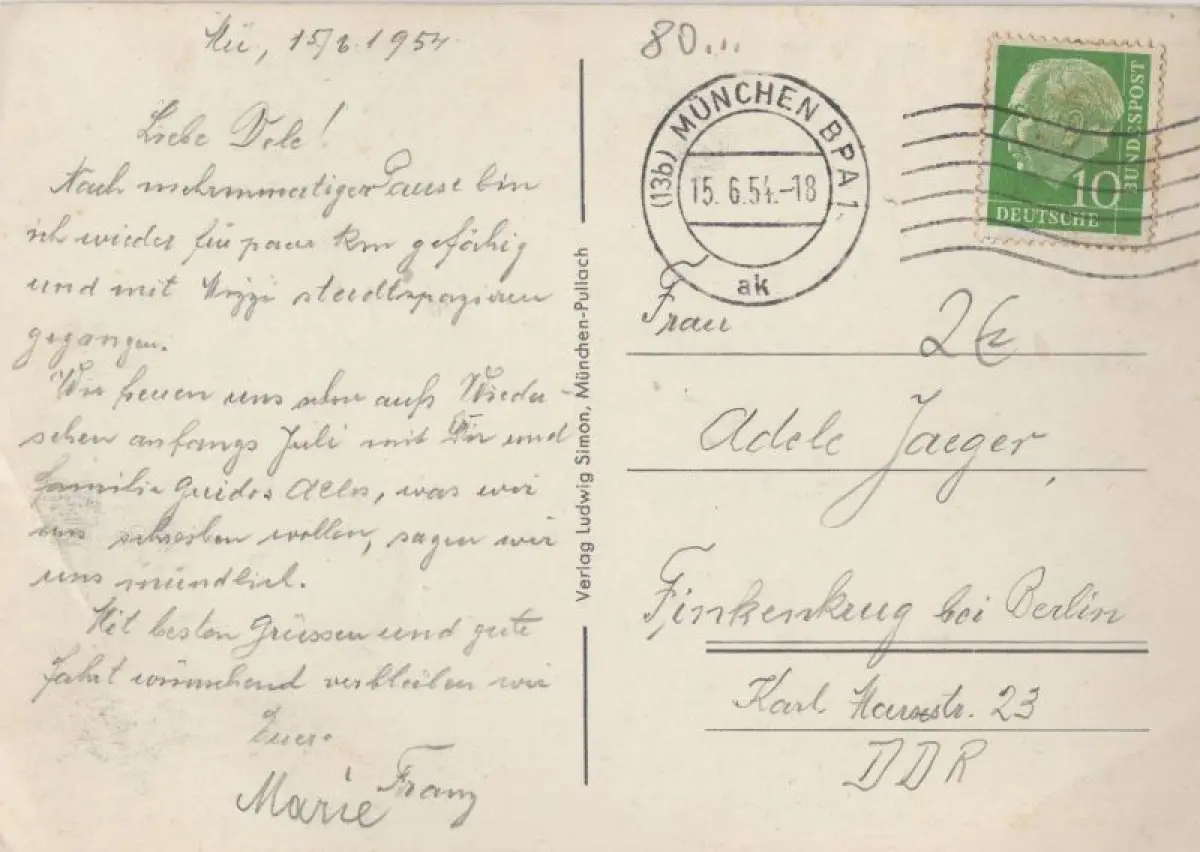 Mü, 15/6.1954.
Liebe Dele!
Nach mehrmonatiger Pause bin
ich wieder für paar km gefähig
und mit Mizzi stadtspazieren
gegangen.
Wir freuen uns schon aufs Wieder-
sehen anfangs Juli mit Dir und
Familie Guidos Alles, was wir
uns schreiben wollen, sagen wir
uns mündlich.
Mit besten Grüssen und gute
Fahrt wünschend verbleiben wir
Euer
Franz
Marie
Verlag Ludwig Simon, München-Pullach
80...
(13b) MÜNCHEN BPA 1
15.6.54.-18
ak
10
DEUTSCHE
BUNDESPOST
Frau
2€
Adele Jaeger,
Finkenkrug bei Berlin
Karl Marxstr. 23
DDR